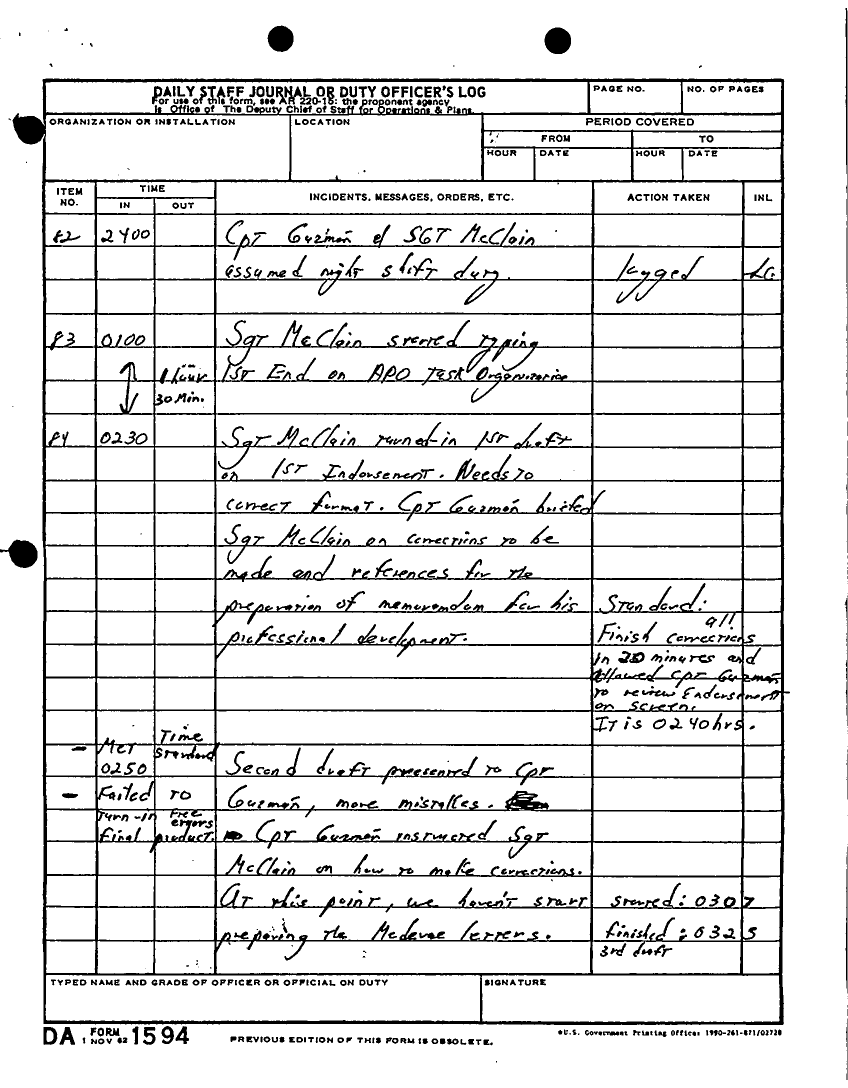 DAILY STAFF JOURNAL OR DUTY OFFICER'S LOG
For use of this form, see AR 220-15: the proponent agency
is Office of The Deputy Chief of Staff for Operations & Plans.
PAGE NO.
NO. OF PAGES
ORGANIZATION OR INSTALLATION
LOCATION
PERIOD COVERED
FROM
TO
HOUR
DATE
HOUR
DATE
ITEM NO.
TIME
IN
OUT
INCIDENTS, MESSAGES, ORDERS, ETC.
ACTION TAKEN
INL
82 2400 Cpt Guzmán & SGT McClain
assumed night shift duty. logged LG
83 0100 Sgt McClain started typing
1 hour 1st End on APO Task Organization
30 Min.
84 0230 Sgt McClain turned-in 1st draft
on 1st Indorsement. Needs to
correct format. Cpt Guzmán briefed
Sgt McClain on corrections to be
made and references for the
preparation of memorandum for his
professional development.
Standard:
Finish all corrections
in 20 minutes and
allowed Cpt Guzmán
to review Endorsement
on screen.
It is 0240 hrs.
- Met Time Standard
0250 Second draft presented to Cpt
- Failed to Guzmán, more mistakes.
Turn-in Free errors
final product. Cpt Guzmán instructed Sgt
McClain on how to make corrections.
At this point, we haven't start started: 0307
preparing the Medevac letters. finished: 0325
3rd draft
TYPED NAME AND GRADE OF OFFICER OR OFFICIAL ON DUTY
SIGNATURE
DA FORM 1594
1 NOV 62
PREVIOUS EDITION OF THIS FORM IS OBSOLETE.
*U.S. Government Printing Office: 1990-261-871/02728